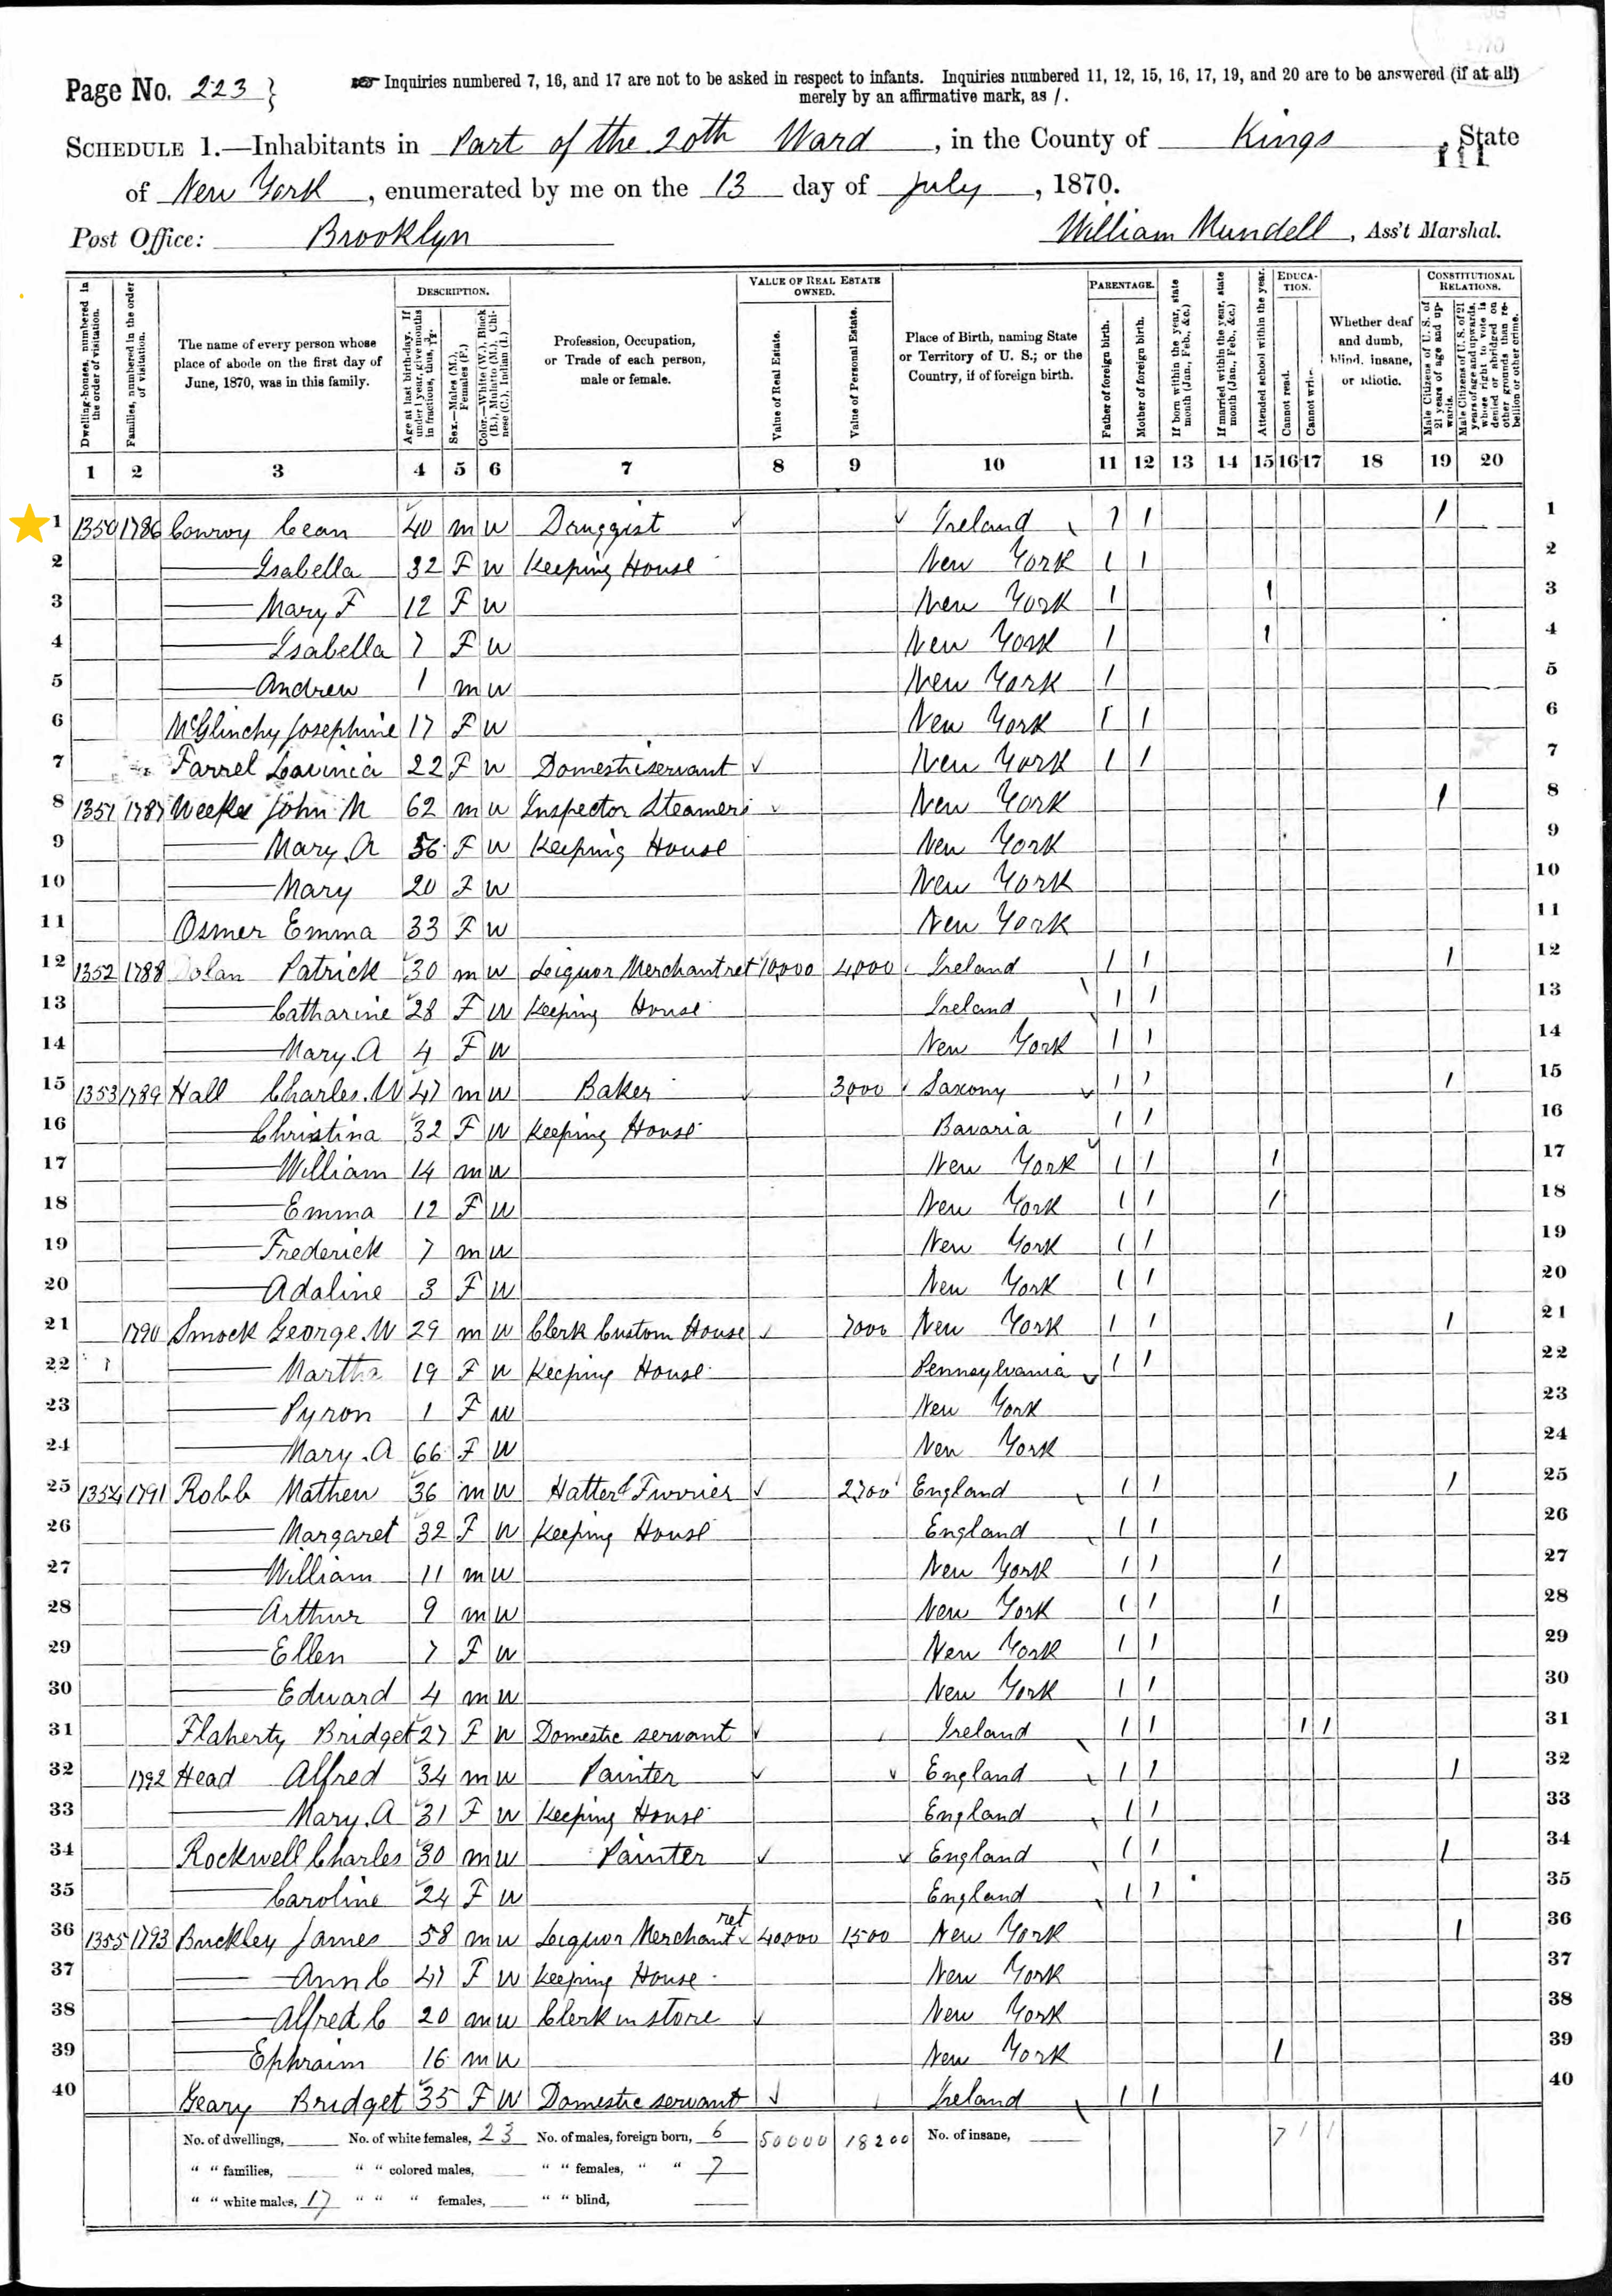 Page No. 223
Inquiries numbered 7, 16, and 17 are not to be asked in respect to infants. Inquiries numbered 11, 12, 15, 16, 17, 19, and 20 are to be answered (if at all)
merely by an affirmative mark, as /.
SCHEDULE 1.—Inhabitants in Part of the 20th Ward, in the County of Kings, State
of New York, enumerated by me on the 13 day of July, 1870.
Post Office: Brooklyn
William Mundell, Ass't Marshal.
DESCRIPTION.
VALUE OF REAL ESTATE OWNED.
PARENTAGE.
EDUCATION.
CONSTITUTIONAL RELATIONS.
Dwelling-houses, numbered in the order of visitation.
Families, numbered in the order of visitation.
The name of every person whose place of abode on the first day of June, 1870, was in this family.
Age at last birth-day. If under 1 year, give months in fractions, thus,
Sex.—Males (M.), Females (F.)
Color.—White (W.), Black (B.), Mulatto (M.), Chinese (C.), Indian (I.)
Profession, Occupation, or Trade of each person, male or female.
Value of Real Estate.
Value of Personal Estate.
Place of Birth, naming State or Territory of U. S.; or the Country, if of foreign birth.
Father of foreign birth.
Mother of foreign birth.
If born within the year, state month (Jan., Feb., &c.)
If married within the year, state month (Jan., Feb., &c.)
Attended school within the year.
Cannot read.
Cannot write.
Whether deaf and dumb, blind, insane, or idiotic.
Male Citizens of U. S. of 21 years of age and upwards.
Male Citizens of U. S. of 21 years of age and upwards, whose right to vote is denied or abridged on other grounds than rebellion or other crime.
1 2 3 4 5 6 7 8 9 10 11 12 13 14 15 16 17 18 19 20
1 1350 1786 Conroy Cean 40 m W Druggist Ireland 1 1 1 1
2 Isabella 32 F W Keeping House New York 1 1 2
3 Mary F 12 F W New York 1 1 3
4 Isabella 7 F W New York 1 1 4
5 Andrew 1 m W New York 1 5
6 McGlinchy Josephine 17 F W New York 1 1 6
7 Farrel Lavinia 22 F W Domestic servant New York 1 1 7
8 1351 1787 Weekes John M 62 m W Inspector Steamers New York 1 8
9 Mary A 56 F W Keeping House New York 9
10 Mary 20 F W New York 10
11 Osmer Emma 33 F W New York 11
12 1352 1788 Dolan Patrick 30 m W Liquor Merchant ret 10,000 4,000 Ireland 1 1 1 12
13 Catharine 28 F W Keeping House Ireland 1 1 13
14 Mary A 4 F W New York 1 1 14
15 1353 1789 Hall Charles W 47 m W Baker 3,000 Saxony 1 1 1 15
16 Christina 32 F W Keeping House Bavaria 1 1 16
17 William 14 m W New York 1 1 1 17
18 Emma 12 F W New York 1 1 1 18
19 Frederick 7 m W New York 1 1 19
20 Adaline 3 F W New York 1 1 20
21 1790 Smock George W 29 m W Clerk Custom House 7000 New York 1 1 1 21
22 Martha 19 F W Keeping House Pennsylvania 1 1 22
23 Pyron 1 F W New York 23
24 Mary A 66 F W New York 24
25 1354 1791 Robb Mathew 36 m W Hatter & Furrier 2700 England 1 1 1 25
26 Margaret 32 F W Keeping House England 1 1 26
27 William 11 m W New York 1 1 1 27
28 Arthur 9 m W New York 1 1 1 28
29 Ellen 7 F W New York 1 1 29
30 Edward 4 m W New York 1 1 30
31 Flaherty Bridget 27 F W Domestic servant Ireland 1 1 1 1 31
32 1792 Head Alfred 34 m W Painter England 1 1 1 32
33 Mary A 31 F W Keeping House England 1 1 33
34 Rockwell Charles 30 m W Painter England 1 1 1 34
35 Caroline 24 F W England 1 1 35
36 1355 1793 Buckley James 58 m W Liquor Merchant ret 40,000 1500 New York 1 36
37 Ann C 47 F W Keeping House New York 37
38 Alfred C 20 m W Clerk in store New York 38
39 Ephraim 16 m W New York 1 39
40 Geary Bridget 35 F W Domestic servant Ireland 1 1 40
No. of dwellings, No. of white females, 23 No. of males, foreign born, 6 50000 18200 No. of insane, 7 1 1
" " families, " " colored males, " " females, " " 7
" " white males, 17 " " " females, " " blind,